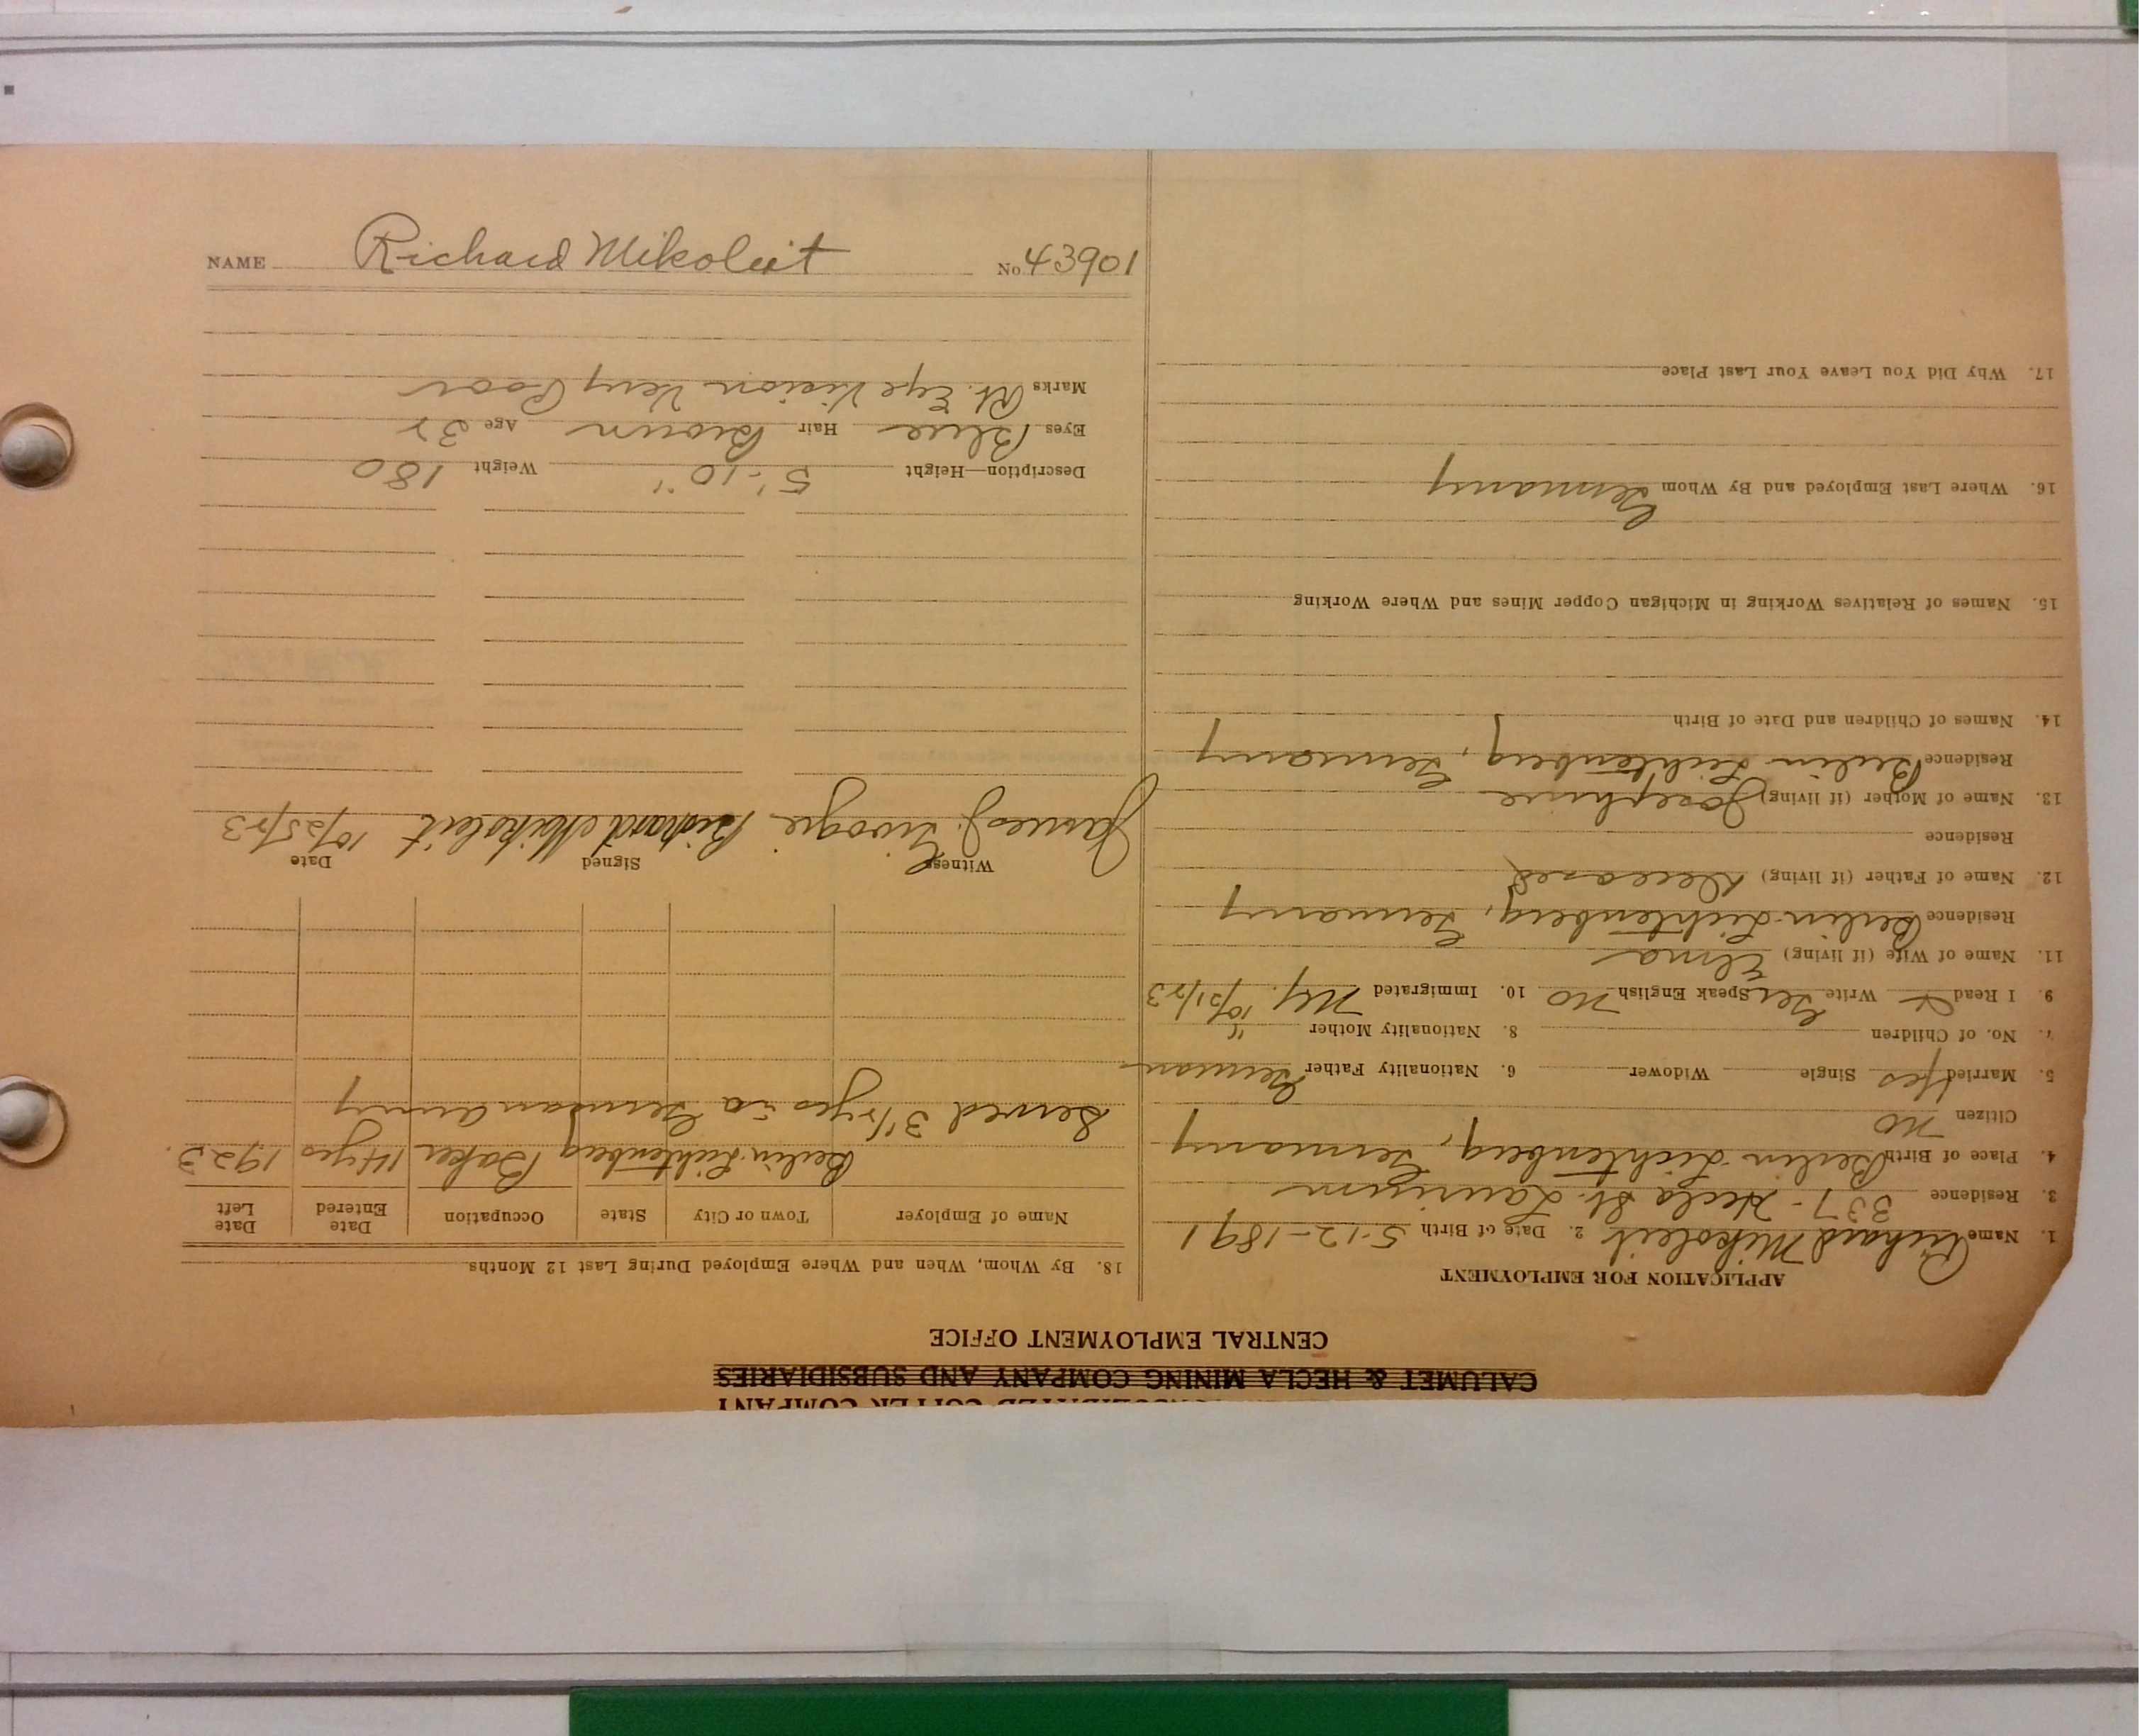 CONSOLIDATED COPPER COMPANY
CALUMET & HECLA MINING COMPANY AND SUBSIDIARIES
CENTRAL EMPLOYMENT OFFICE
APPLICATION FOR EMPLOYMENT
1. Name Richard Mikoleit 2. Date of Birth 5-12-1891
3. Residence 337-Hecla St. Laurium
4. Place of Birth Berlin-Lichtenberg, Germany
Citizen No
5. Married Yes Single Widower 6. Nationality Father German
7. No. of Children 8. Nationality Mother "
9. I Read & Write Ger Speak English No 10. Immigrated 10/21/23
11. Name of Wife (if living) Elma
Residence Berlin-Lichtenberg, Germany
12. Name of Father (if living) Deceased
Residence
13. Name of Mother (if living) Josephine
Residence Berlin Lichtenberg, Germany
14. Names of Children and Date of Birth
15. Names of Relatives Working in Michigan Copper Mines and Where Working
16. Where Last Employed and By Whom Germany
17. Why Did You Leave Your Last Place
18. By Whom, When and Where Employed During Last 12 Months
Name of Employer Town or City State Occupation Date Entered Date Left
Berlin-Lichtenberg Baker 14 yrs 1923.
Served 3 1/2 yrs in German army
Witness Signed Date
James J. Richard Mikoleit 10/25/23
Description—Height 5'-10" Weight 180
Eyes Blue Hair Brown Age 32
Marks Rt. Eye Vision Very Poor
NAME Richard Mikoleit No. 43901